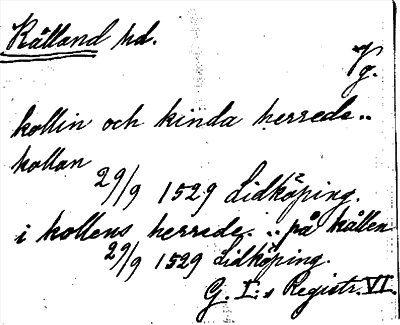 Kålland hd.
Vg.
kollin och kinda herrede..
kollan
29/9 1529 Lidköping.
i kollens herrede .. på kållen
29/9 1529 Lidköping.
G. I:s Registr. VI.